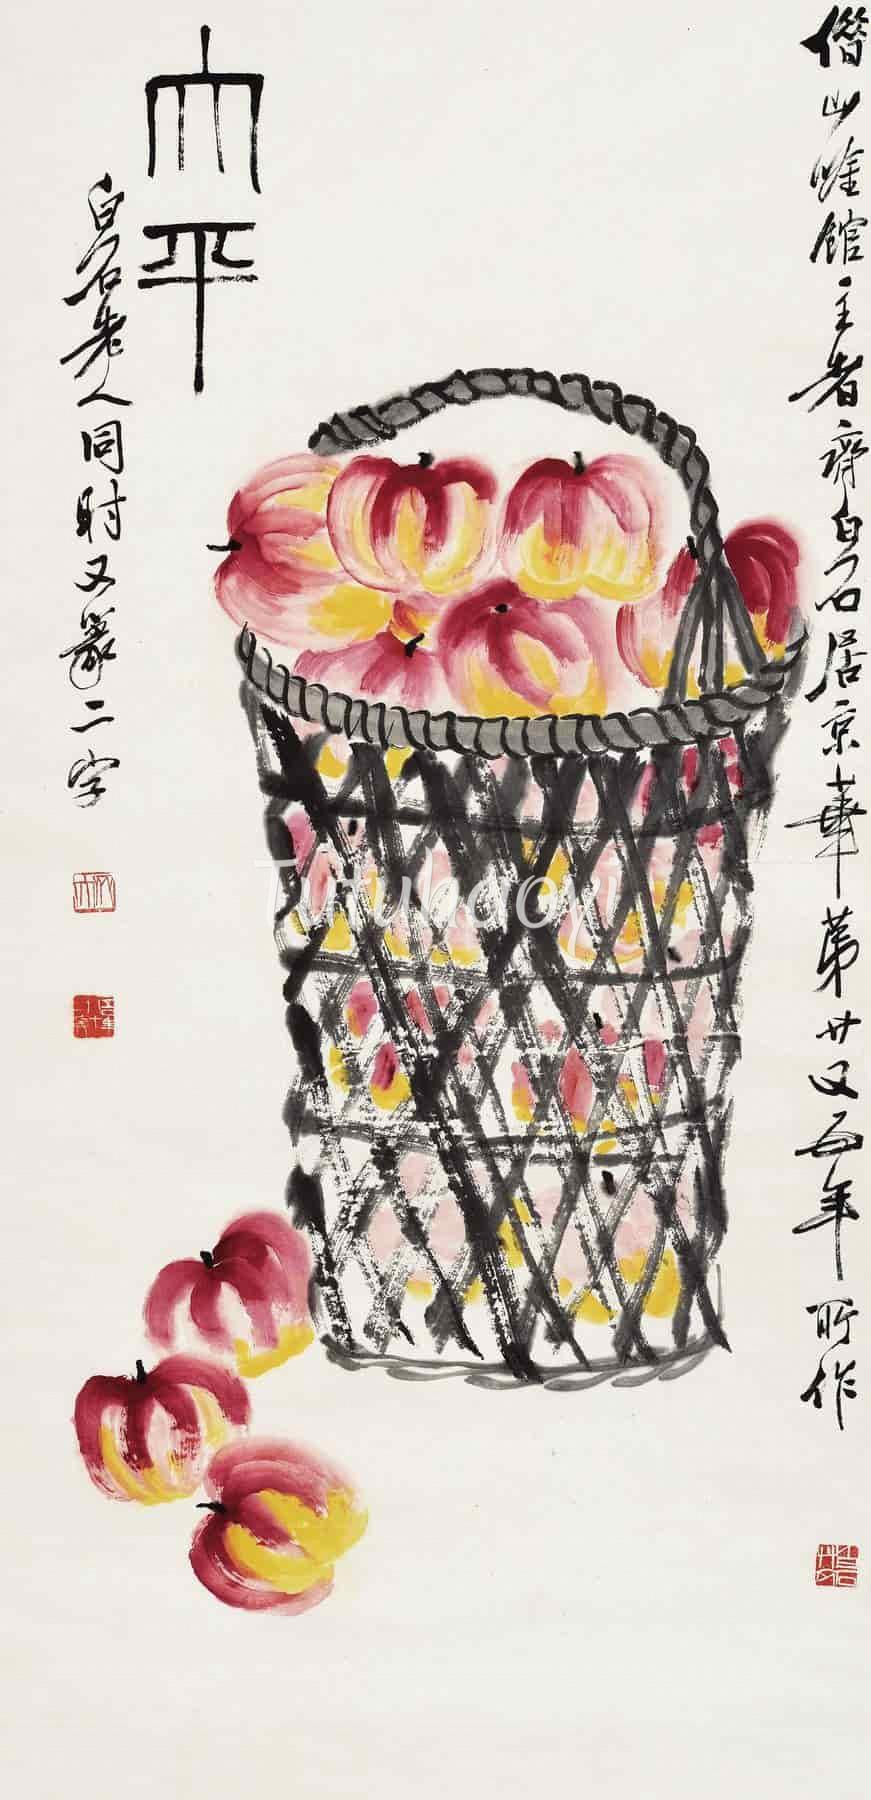 借山唫馆主者齊白石居京華第廿又五年所作
太平
白石老人同时又篆二字
Tutubaoyi